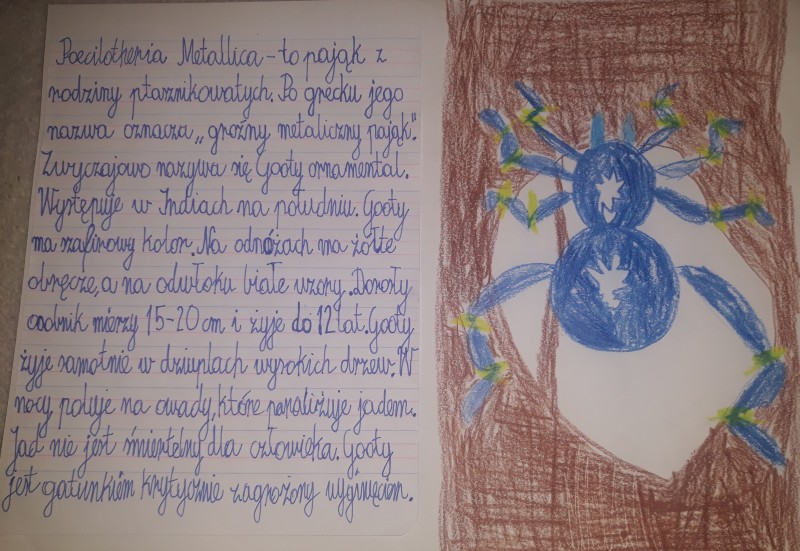 Poecilotheria Metallica - to pająk z
rodziny ptasznikowatych. Po grecku jego
nazwa oznacza „groźny metaliczny pająk".
Zwyczajowo nazywa się Gooty ornamental.
Występuje w Indiach na południu. Gooty
ma szafirowy kolor. Na odnóżach ma żółte
obręcze, a na odwłoku białe wzory. Dorosły
osobnik mierzy 15-20 cm i żyje do 12 lat. Gooty
żyje samotnie w dziuplach wysokich drzew. W
nocy poluje na owady, które paraliżuje jadem.
Jad nie jest śmiertelny dla człowieka. Gooty
jest gatunkiem krytycznie zagrożony wyginięciem.